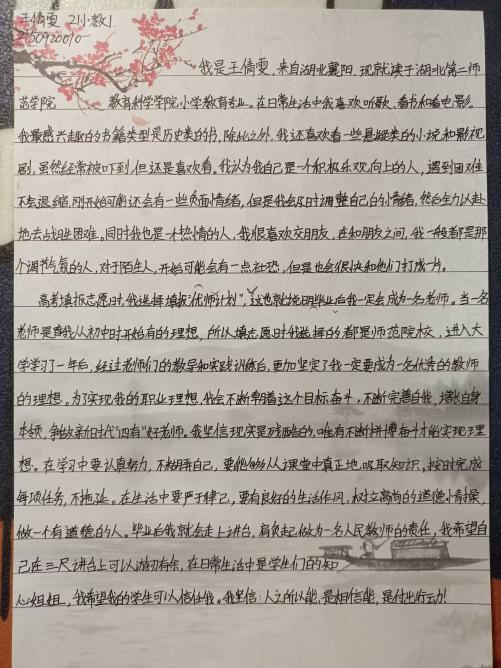 王倩雯 21小教1
2150920010
我是王倩雯,来自湖北襄阳,现就读于湖北第二师
范学院 教育科学学院小学教育专业。在日常生活中我喜欢听歌、看书和看电影。
我最感兴趣的书籍类型是历史类的书,除此之外,我还喜欢看一些悬疑类的小说和影视
剧,虽然经常被吓到,但还是喜欢看。我认为我自己是一个积极乐观向上的人,遇到困难
不会退缩,刚开始可能还会有一些负面情绪,但是我会及时调整自己的情绪,然后全力以赴
地去战胜困难。同时我也是一个热情的人,我很喜欢交朋友,在和朋友之间,我一般都是那
个调节气氛的人,对于陌生人,开始可能会有一点社恐,但是也会很快和他们打成一片。
高考填报志愿时,我选择填报“优师计划”,这也就说明毕业后我一定会成为一名老师。当一名
老师是我从初中时开始有的理想,所以填志愿时我选择的都是师范院校,进入大
学学习了一年后,经过老师们的教导和实践训练后,更加坚定了我一定要成为一名优秀的教师
的理想。为了实现我的职业理想,我会不断朝着这个目标奋斗,不断完善自我,增长自身
本领,争做新时代“四有”好老师。我坚信现实是残酷的,唯有不断拼搏奋斗才能实现理
想。在学习中要认真努力,不糊弄自己,要能够从课堂中真正地吸取知识,按时完成
每项任务,不拖延。在生活中要严于律己,要有良好的生活作风,树立高尚的道德情操,
做一个有道德的人。毕业后我就会走上讲台,肩负起做为一名人民教师的责任,我希望自
己在三尺讲台上可以游刃有余,在日常生活中是学生们的知
心姐姐,我希望我的学生可以信任我。我坚信:人之所以能,是相信能,是付出行动!